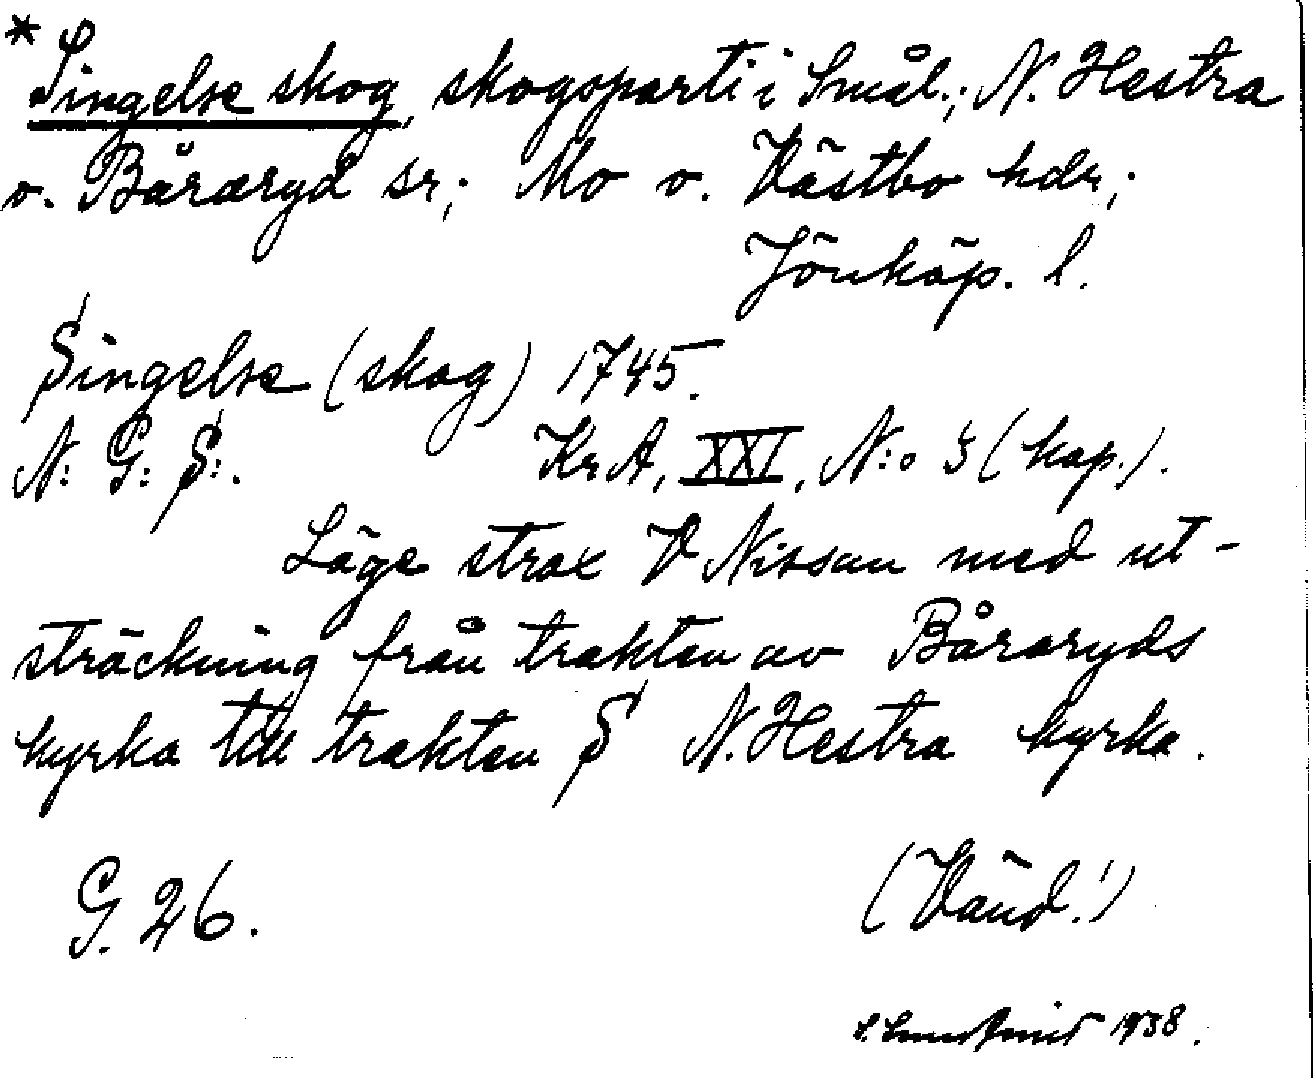 * Singelse skog, skogsparti i Smål.; N. Hestra
o. Båraryd sr; Mo o. Västbo hdr,;
Jönköp. l.
Singelse (skog) 1745.
N: G: S:. KrA, XXI, N:o 3 (kap.).
Läge strax V Nissan med ut-
sträckning från trakten av Båraryds
kyrka till trakten S N. Hestra kyrka.
G. 26. (Vänd!)
1938.